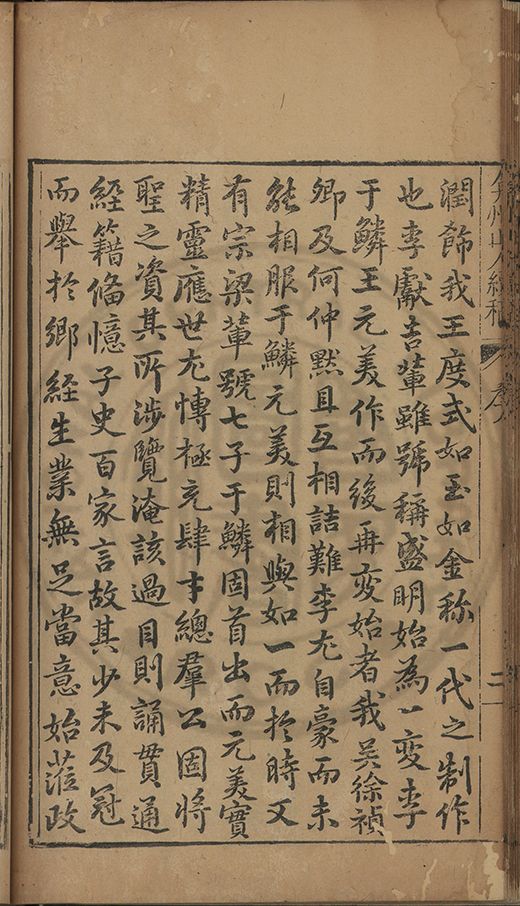 弇州山人續稿 序 二
潤飾我王度式如玉如金称一代之制作
也李獻吉輩雖號稱盛明始為一變李
于鱗王元美作而後再變始者我吳徐禎
卿及何仲默且互相詰難李尤自豪而未
能相服于鱗元美則相與如一而於時又
有宗梁輩號七子于鱗固首出而元美實
精靈應世尤慱極充肆才總羣公固將
聖之資其所涉覽淹該過目則誦貫通
經籍俻憶子史百家言故其少未及冠
而舉扵鄉經生業無足當意始蒞政